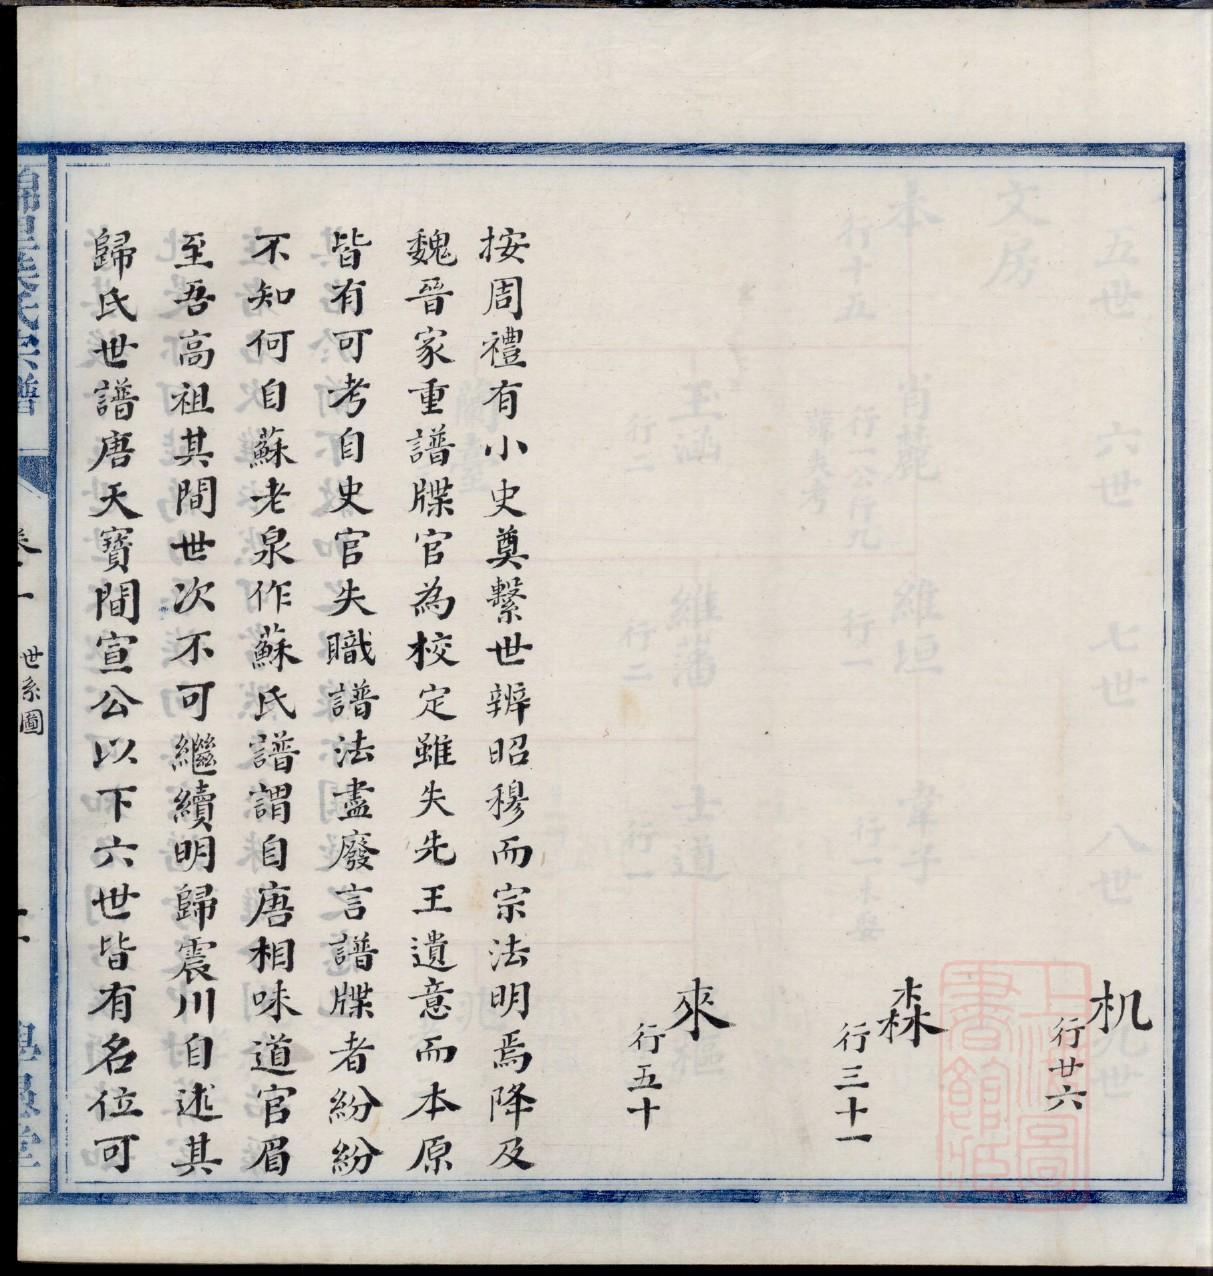 机
行廿六
森
行三十一
來
行五十
按周禮有小史奠繫世辨昭穆而宗法明焉降及
魏晉家重譜牒官為校定雖失先王遺意而本原
皆有可考自史官失職譜法盡廢言譜牒者紛紛
不知何自蘇老泉作蘇氏譜謂自唐相味道官眉
至吾高祖其間世次不可繼續明歸震川自述其
歸氏世譜唐天寶間宣公以下六世皆有名位可
氏宗譜
卷一
世系圖
上海圖書館藏